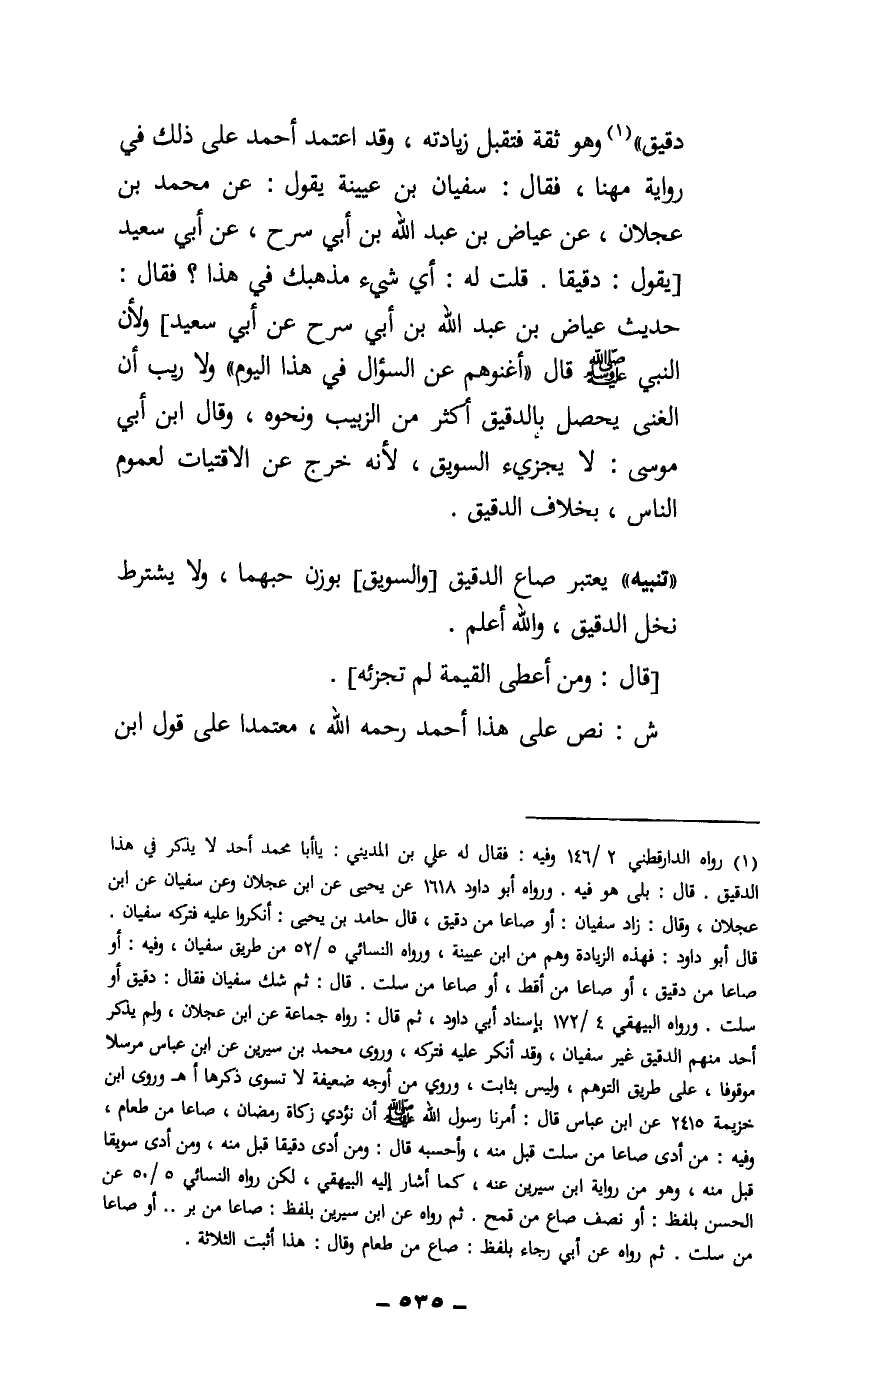 دقيق»(١) وهو ثقة فتقبل زيادته ، وقد اعتمد أحمد على ذلك في
رواية مهنا ، فقال : سفيان بن عيينة يقول : عن محمد بن
عجلان ، عن عياض بن عبد الله بن أبي سرح ، عن أبي سعيد
[يقول : دقيقا . قلت له : أي شيء مذهبك في هذا ؟ فقال :
حديث عياض بن عبد الله بن أبي سرح عن أبي سعيد] ولأن
النبي ﷺ قال «أغنوهم عن السؤال في هذا اليوم» ولا ريب أن
الغنى يحصل بالدقيق أكثر من الزبيب ونحوه ، وقال ابن أبي
موسى : لا يجزيء السويق ، لأنه خرج عن الاقتيات لعموم
الناس ، بخلاف الدقيق .
«تنبيه» يعتبر صاع الدقيق [والسويق] بوزن حبهما ، ولا يشترط
نخل الدقيق ، والله أعلم .
[قال : ومن أعطى القيمة لم تجزئه] .
ش : نص على هذا أحمد رحمه الله ، معتمدا على قول ابن
(١) رواه الدارقطني ٢ /١٤٦ وفيه : فقال له علي بن المديني : ياأبا محمد أحد لا يذكر في هذا
الدقيق . قال : بلى هو فيه . ورواه أبو داود ١٦١٨ عن يحيى عن ابن عجلان وعن سفيان عن ابن
عجلان ، وقال : زاد سفيان : أو صاعا من دقيق ، قال حامد بن يحيى : أنكروا عليه فتركه سفيان .
قال أبو داود : فهذه الزيادة وهم من ابن عيينة ، ورواه النسائي ٥ /٥٢ من طريق سفيان ، وفيه : أو
صاعا من دقيق ، أو صاعا من أقط ، أو صاعا من سلت . قال : ثم شك سفيان فقال : دقيق أو
سلت . ورواه البيهقي ٤ /١٧٢ بإسناد أبي داود ، ثم قال : رواه جماعة عن ابن عجلان ، ولم يذكر
أحد منهم الدقيق غير سفيان ، وقد أنكر عليه فتركه ، وروى محمد بن سيرين عن ابن عباس مرسلا
موقوفا ، على طريق التوهم ، وليس بثابت ، وروي من أوجه ضعيفة لا تسوى ذكرها أ هـ وروى ابن
خزيمة ٢٤١٥ عن ابن عباس قال : أمرنا رسول الله ﷺ أن نؤدي زكاة رمضان ، صاعا من طعام ،
وفيه : من أدى صاعا من سلت قبل منه ، وأحسبه قال : ومن أدى دقيقا قبل منه ، ومن أدى سويقا
قبل منه ، وهو من رواية ابن سيرين عنه ، كما أشار إليه البيهقي ، لكن رواه النسائي ٥ /٥٠ عن
الحسن بلفظ : أو نصف صاع من قمح . ثم رواه عن ابن سيرين بلفظ : صاعا من بر .. أو صاعا
من سلت . ثم رواه عن أبي رجاء بلفظ : صاع من طعام وقال : هذا أثبت الثلاثة .
ـ ٥٣٥ ـ